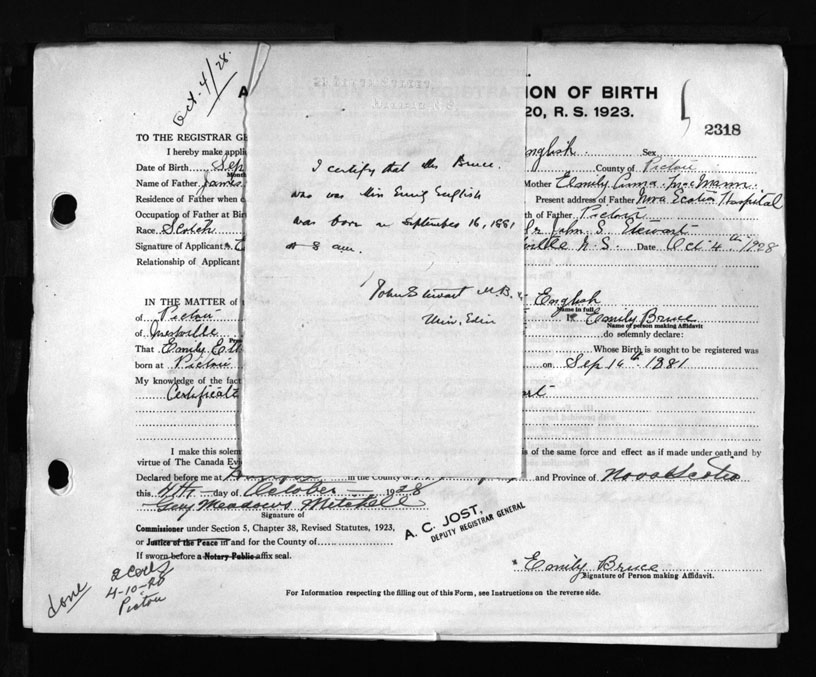 Oct. 4/28.
ION OF BIRTH
20, R. S. 1923.
2318
TO THE REGISTRAR GE
I hereby make appli
nglish. Sex
Date of Birth Sep
County of Pictou
Month
Name of Father James
Mother Emily Anna MacMunn
Residence of Father when
Present address of Father Nova Scotia Hospital
Occupation of Father at Bir
th of Father Pictou
Race. Scotch
Dr John S. Stewart
Signature of Applicant
ville N.S. Date Oct 4th 1928
Relationship of Applicant
I certify that Mrs Bruce.
who was Miss Emily English
was born on September 16, 1881
at 8 am.
John Stewart M.B.
Univ. Edin
IN THE MATTER of
English
Name in full
of Pictou
I, Emily Bruce
Name of person making Affidavit
of
do solemnly declare:
That Emily E
Whose Birth is sought to be registered was
born at Pictou
on Sep 16th 1881
My knowledge of the fact
Certificate
I make this solem
is of the same force and effect as if made under oath and by
virtue of The Canada Evi
Declared before me at in the County of and Province of Nova Scotia
this 4th day of October 1928
Guy Meadows Mitchell
Signature of
Commissioner under Section 5, Chapter 38, Revised Statutes, 1923,
or Justice of the Peace in and for the County of
If sworn before a Notary Public affix seal.
A. C. JOST,
DEPUTY REGISTRAR GENERAL
Emily Bruce
Signature of Person making Affidavit.
done
4-10-28
Pictou
For Information respecting the filling out of this Form, see Instructions on the reverse side.